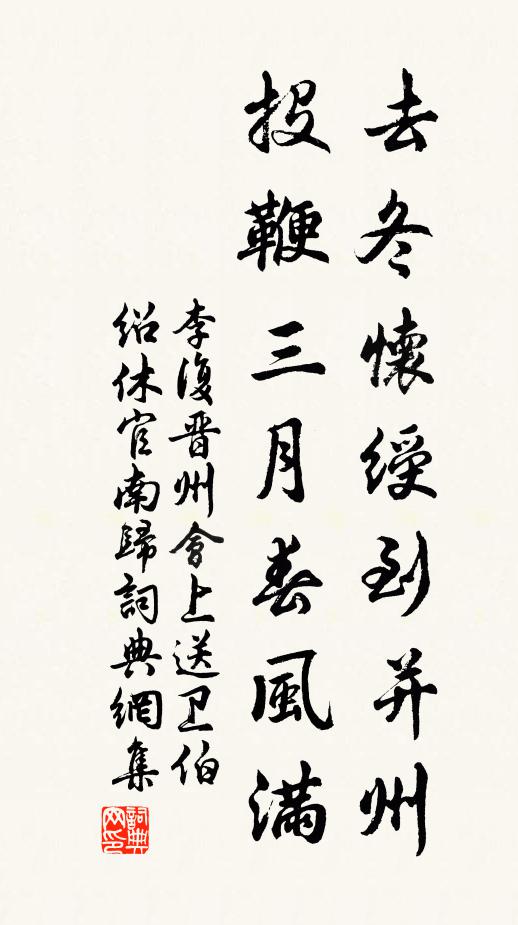 去冬懷綬到并州
投鞭三月春風滿
李復晋州會上送卫伯
紹休官南歸詞典網集
詞典
网印